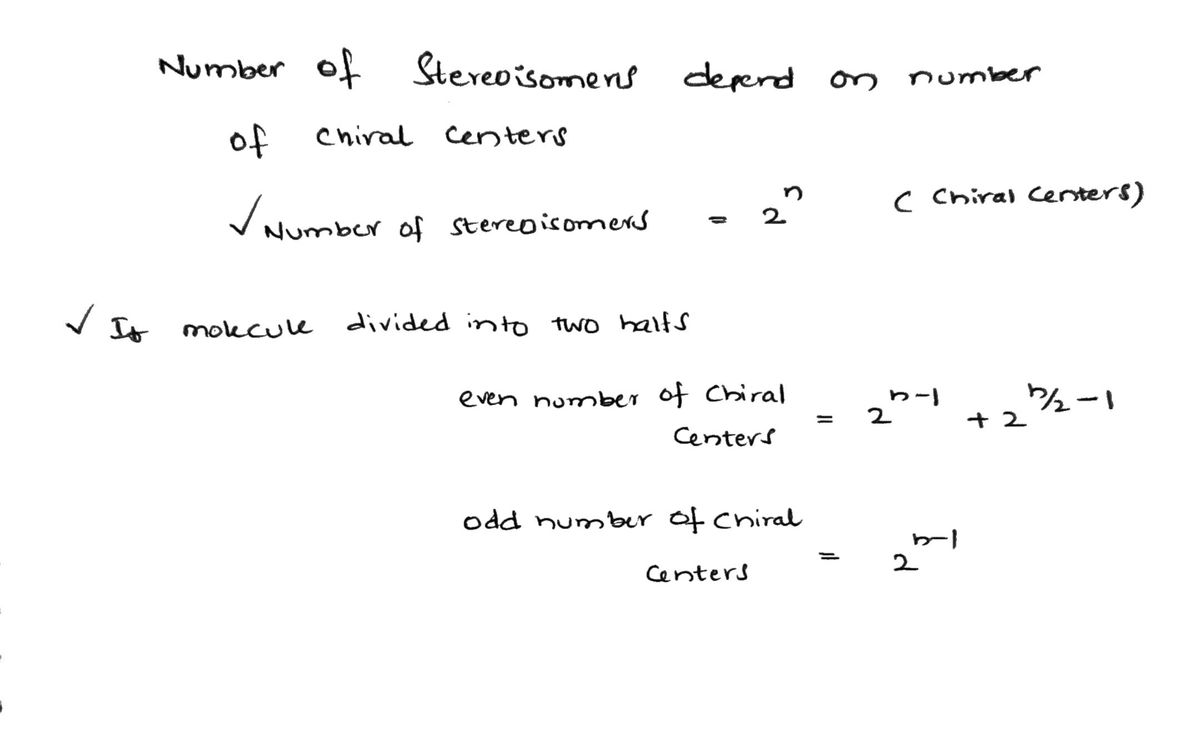 Number of Stereoisomers depend on number
of chiral centers
✓ Number of stereoisomers = 2ⁿ ( Chiral Centers)
✓ If molecule divided into two halfs
even number of Chiral Centers = 2ⁿ⁻¹ + 2^(n/2 - 1)
odd number of Chiral Centers = 2ⁿ⁻¹